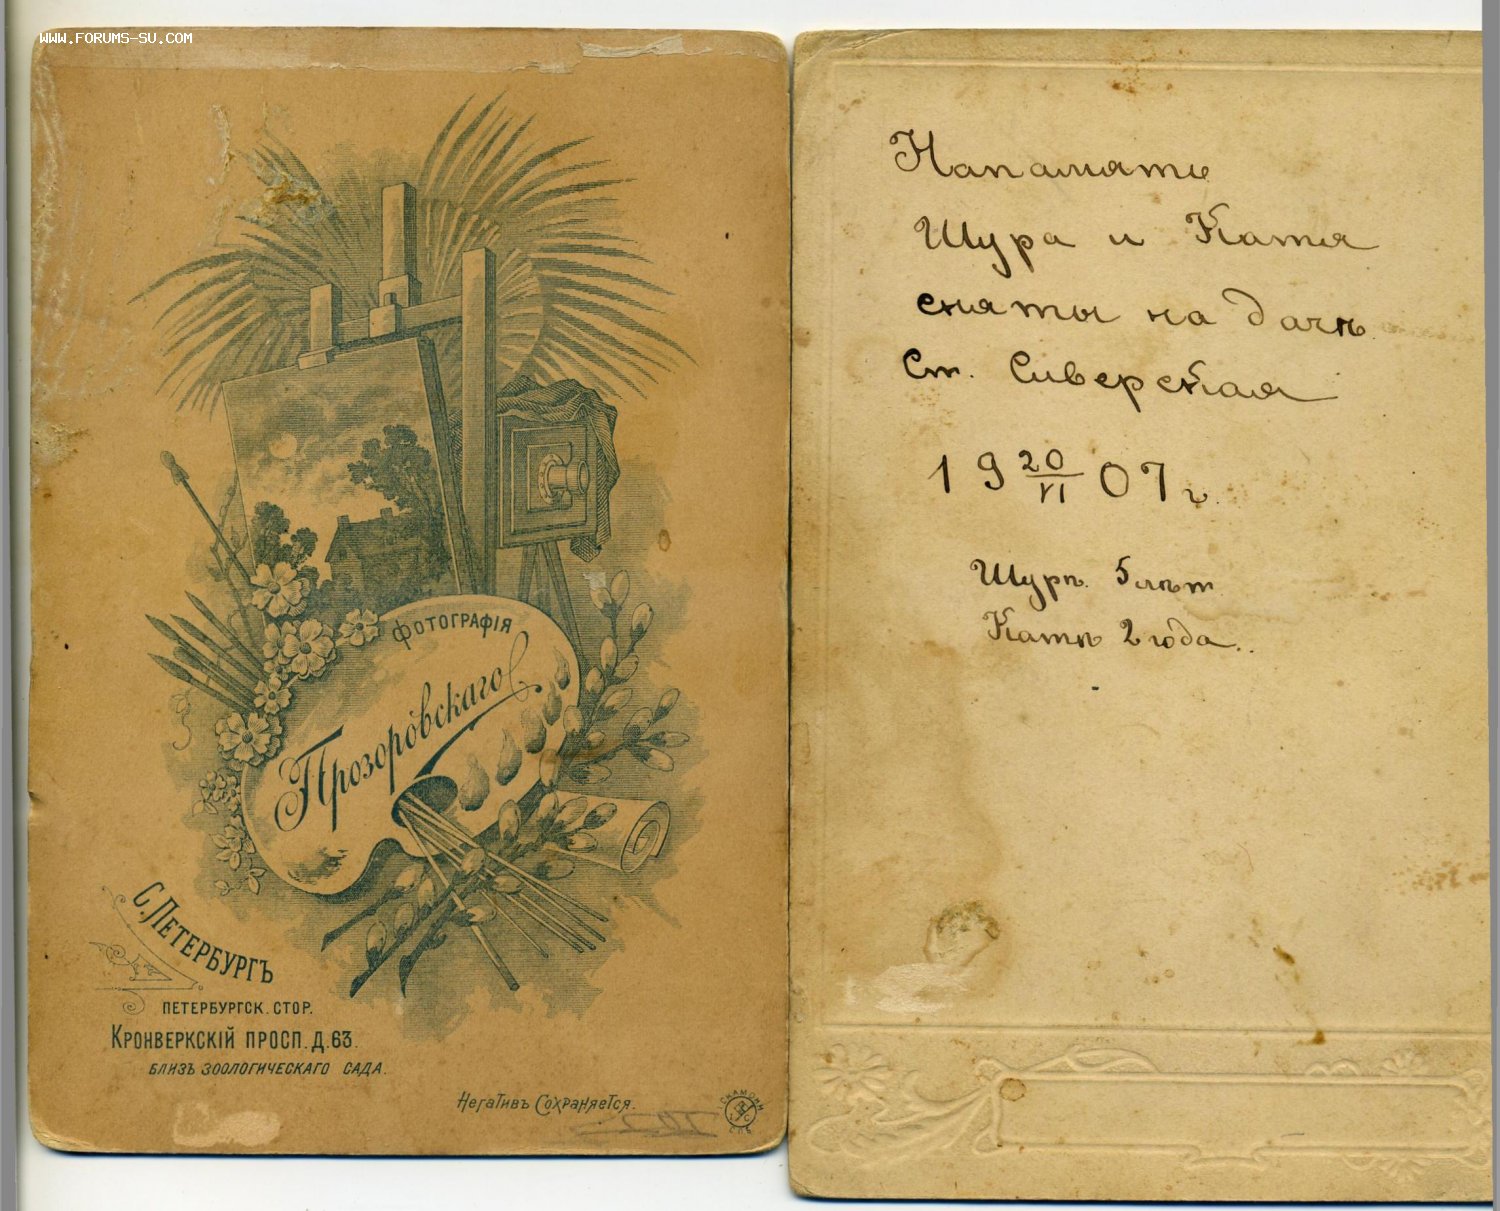 WWW.FORUMS-SU.COM
ФОТОГРАФІЯ
Прозоровскаго
С. ПЕТЕРБУРГЪ
ПЕТЕРБУРГСК. СТОР.
КРОНВЕРКСКІЙ ПРОСП. Д. 63.
БЛИЗЪ ЗООЛОГИЧЕСКАГО САДА.
Негативъ Сохраняется.
Напамять
Шура и Катя
сняты на дачѣ
Ст. Сиверская
19 20/VI 07 г.
Шурѣ 5 лѣт
Катѣ 2 года..